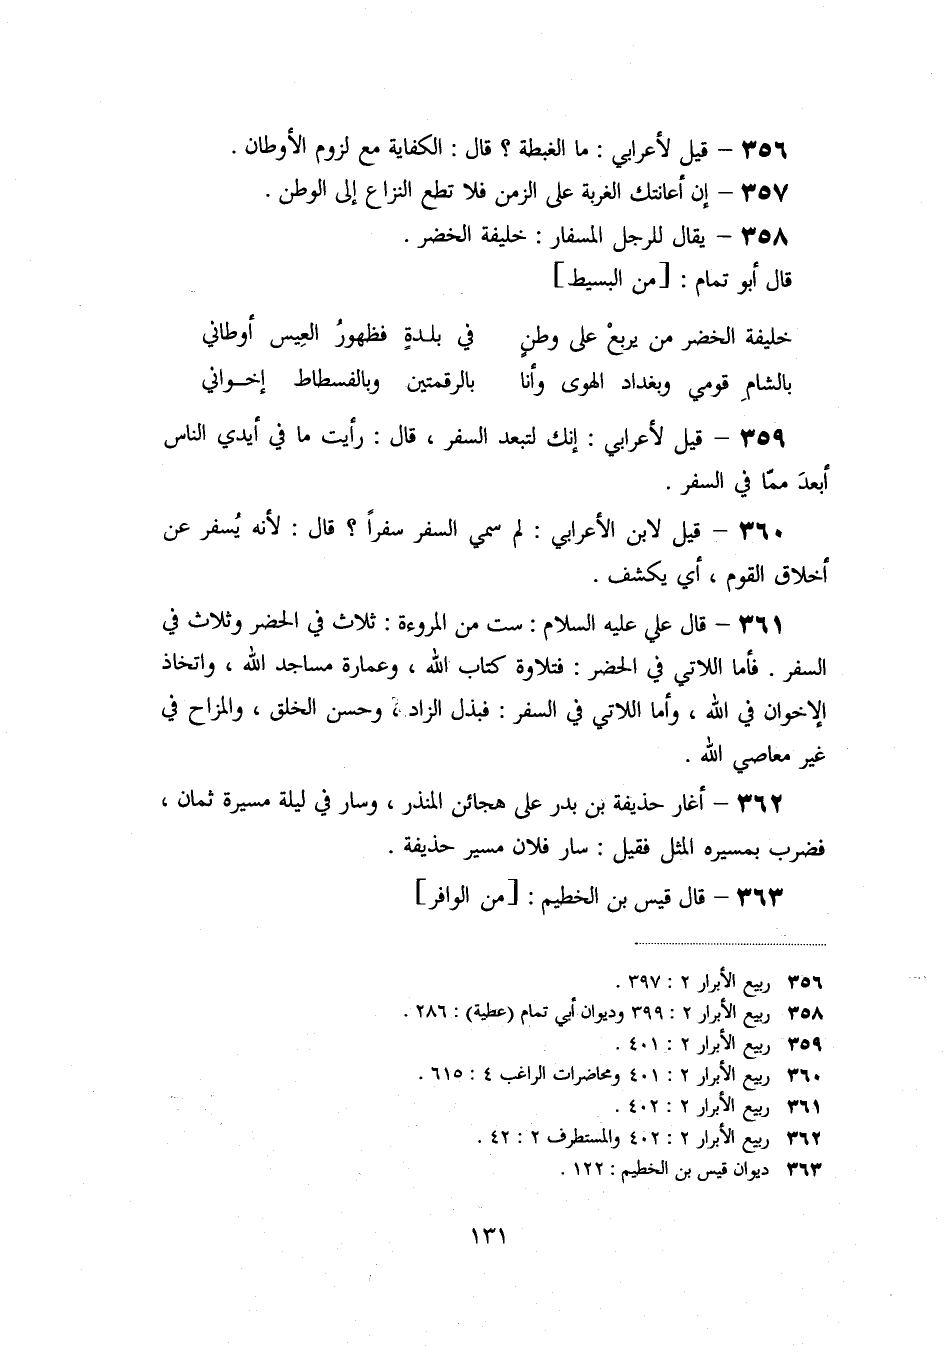 ٣٥٦ – قيل لأعرابي : ما الغبطة ؟ قال : الكفاية مع لزوم الأوطان .
٣٥٧ – إن أعانتك الغربة على الزمن فلا تطع النزاع إلى الوطن .
٣٥٨ – يقال للرجل المسفار : خليفة الخضر .
قال أبو تمام : [من البسيط]
خليفة الخضر من يربعْ على وطنٍ في بلـدةٍ فظهورُ العِيس أوطاني
بالشامِ قومي وبغداد الهوى وأنا بالرقمتين وبالفسطاط إخـواني
٣٥٩ – قيل لأعرابي : إنك لتبعد السفر ، قال : رأيت ما في أيدي الناس
أبعدَ ممّا في السفر .
٣٦٠ – قيل لابن الأعرابي : لم سمي السفر سفراً ؟ قال : لأنه يُسفر عن
أخلاق القوم ، أي يكشف .
٣٦١ – قال علي عليه السلام : ست من المروءة : ثلاث في الحضر وثلاث في
السفر . فأما اللاتي في الحضر : فتلاوة كتاب الله ، وعمارة مساجد الله ، واتخاذ
الإخوان في الله ، وأما اللاتي في السفر : فبذل الزاد ، وحسن الخلق ، والمزاح في
غير معاصي الله .
٣٦٢ – أغار حذيفة بن بدر على هجائن المنذر ، وسار في ليلة مسيرة ثمان ،
فضرب بمسيره المثل فقيل : سار فلان مسير حذيفة .
٣٦٣ – قال قيس بن الخطيم : [من الوافر]
٣٥٦ ربيع الأبرار ٢ : ٣٩٧ .
٣٥٨ ربيع الأبرار ٢ : ٣٩٩ وديوان أبي تمام (عطية) : ٢٨٦ .
٣٥٩ ربيع الأبرار ٢ : ٤٠١ .
٣٦٠ ربيع الأبرار ٢ : ٤٠١ ومحاضرات الراغب ٤ : ٦١٥ .
٣٦١ ربيع الأبرار ٢ : ٤٠٢ .
٣٦٢ ربيع الأبرار ٢ : ٤٠٢ والمستطرف ٢ : ٤٢ .
٣٦٣ ديوان قيس بن الخطيم : ١٢٢ .
١٣١